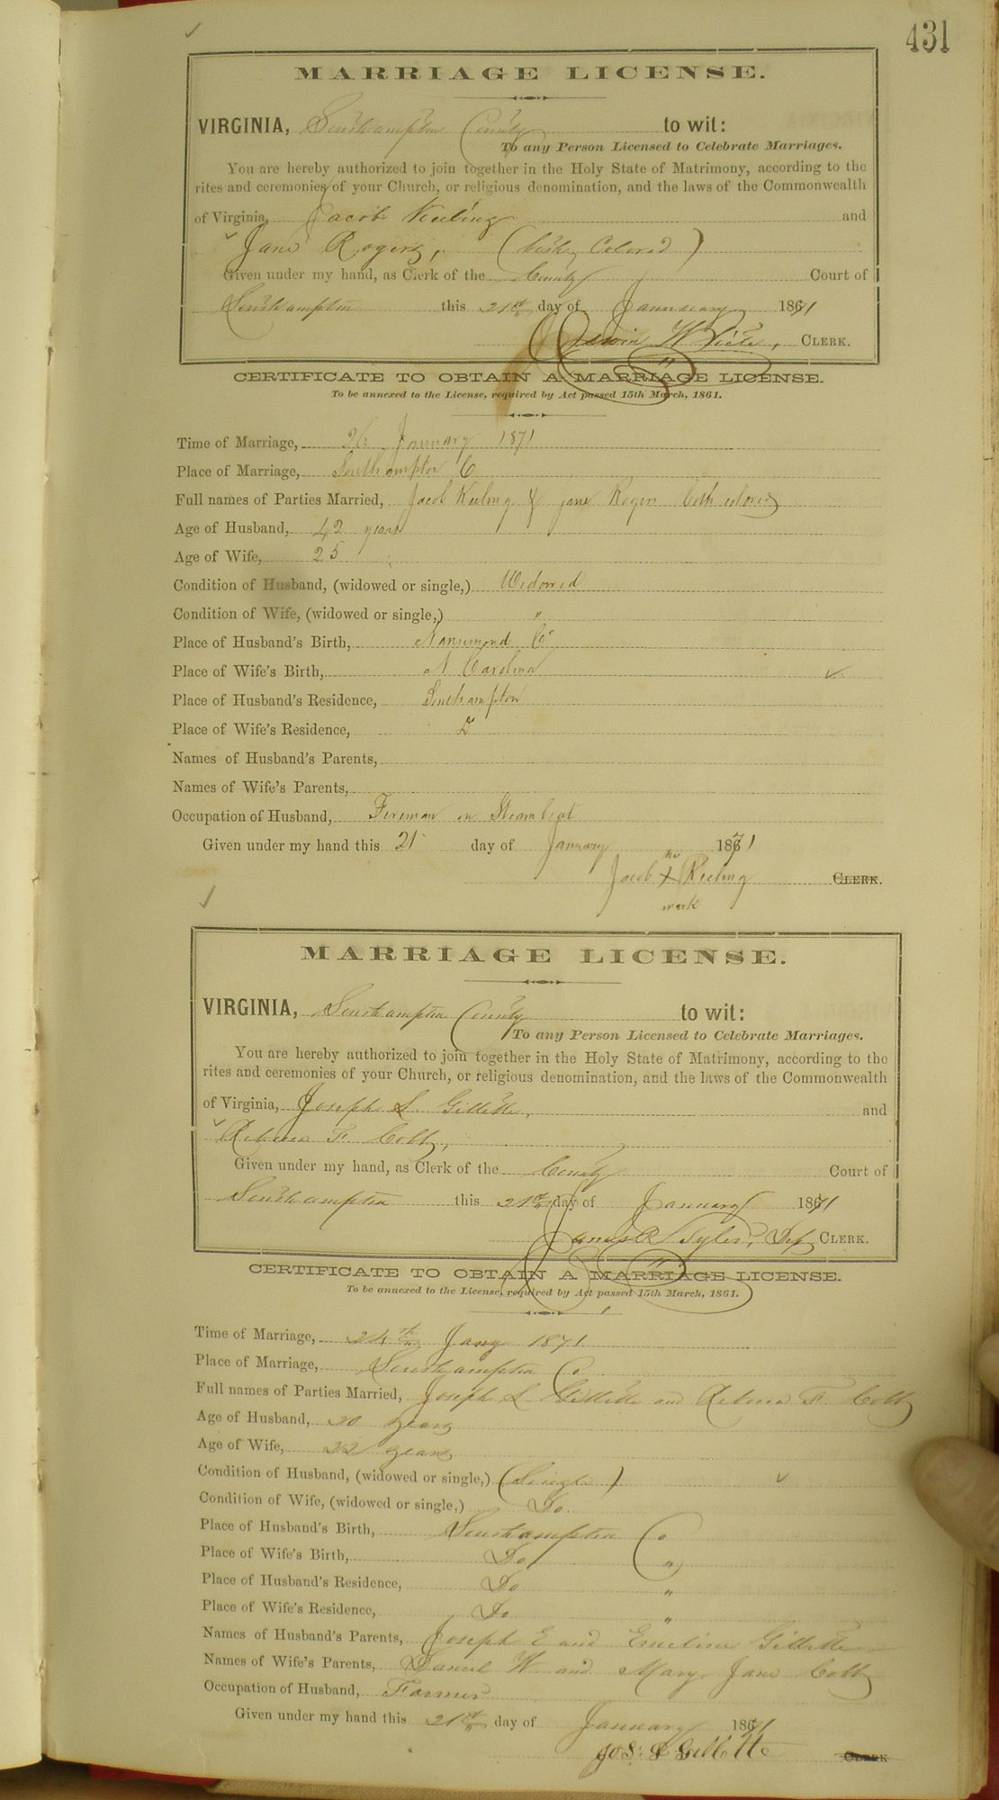 431
MARRIAGE LICENSE.
VIRGINIA, Southampton County to wit:
To any Person Licensed to Celebrate Marriages.
You are hereby authorized to join together in the Holy State of Matrimony, according to the
rites and ceremonies of your Church, or religious denomination, and the laws of the Commonwealth
of Virginia, Jacob Keeling and
Jane Rogers, (both Colored)
Given under my hand, as Clerk of the County Court of
Southampton this 21st day of January 1871
CLERK.
CERTIFICATE TO OBTAIN A MARRIAGE LICENSE.
To be annexed to the License, required by Act passed 15th March, 1861.
Time of Marriage, 26 January 1871
Place of Marriage, Southampton C
Full names of Parties Married, Jacob Keeling & Jane Rogers both colored
Age of Husband, 42 years
Age of Wife, 25
Condition of Husband, (widowed or single,) Widowed
Condition of Wife, (widowed or single,) "
Place of Husband's Birth, Nansemond Co
Place of Wife's Birth, N Carolina
Place of Husband's Residence, Southampton
Place of Wife's Residence, D
Names of Husband's Parents,
Names of Wife's Parents,
Occupation of Husband, Fireman on Steamboat
Given under my hand this 21 day of January 1871
his
Jacob X Keeling CLERK.
mark
MARRIAGE LICENSE.
VIRGINIA, Southampton County to wit:
To any Person Licensed to Celebrate Marriages.
You are hereby authorized to join together in the Holy State of Matrimony, according to the
rites and ceremonies of your Church, or religious denomination, and the laws of the Commonwealth
of Virginia, Joseph S. Gillette, and
F. Cobb,
Given under my hand, as Clerk of the County Court of
Southampton this 21st day of January 1871
James R Tyler, Dep CLERK.
CERTIFICATE TO OBTAIN A MARRIAGE LICENSE.
To be annexed to the License, required by Act passed 15th March, 1861.
Time of Marriage, 24th Jany 1871
Place of Marriage, Southampton Co
Full names of Parties Married, Joseph S Gillette and F. Cobb
Age of Husband, 20 years
Age of Wife, 22 years
Condition of Husband, (widowed or single,) (Single)
Condition of Wife, (widowed or single,) Do.
Place of Husband's Birth, Southampton Co
Place of Wife's Birth, Do "
Place of Husband's Residence, Do "
Place of Wife's Residence, Do "
Names of Husband's Parents, Joseph E and Emeline Gillette
Names of Wife's Parents, Daniel W and Mary Jane Cobb
Occupation of Husband, Farmer
Given under my hand this 21st day of January 1871
Jos. S Gillette CLERK